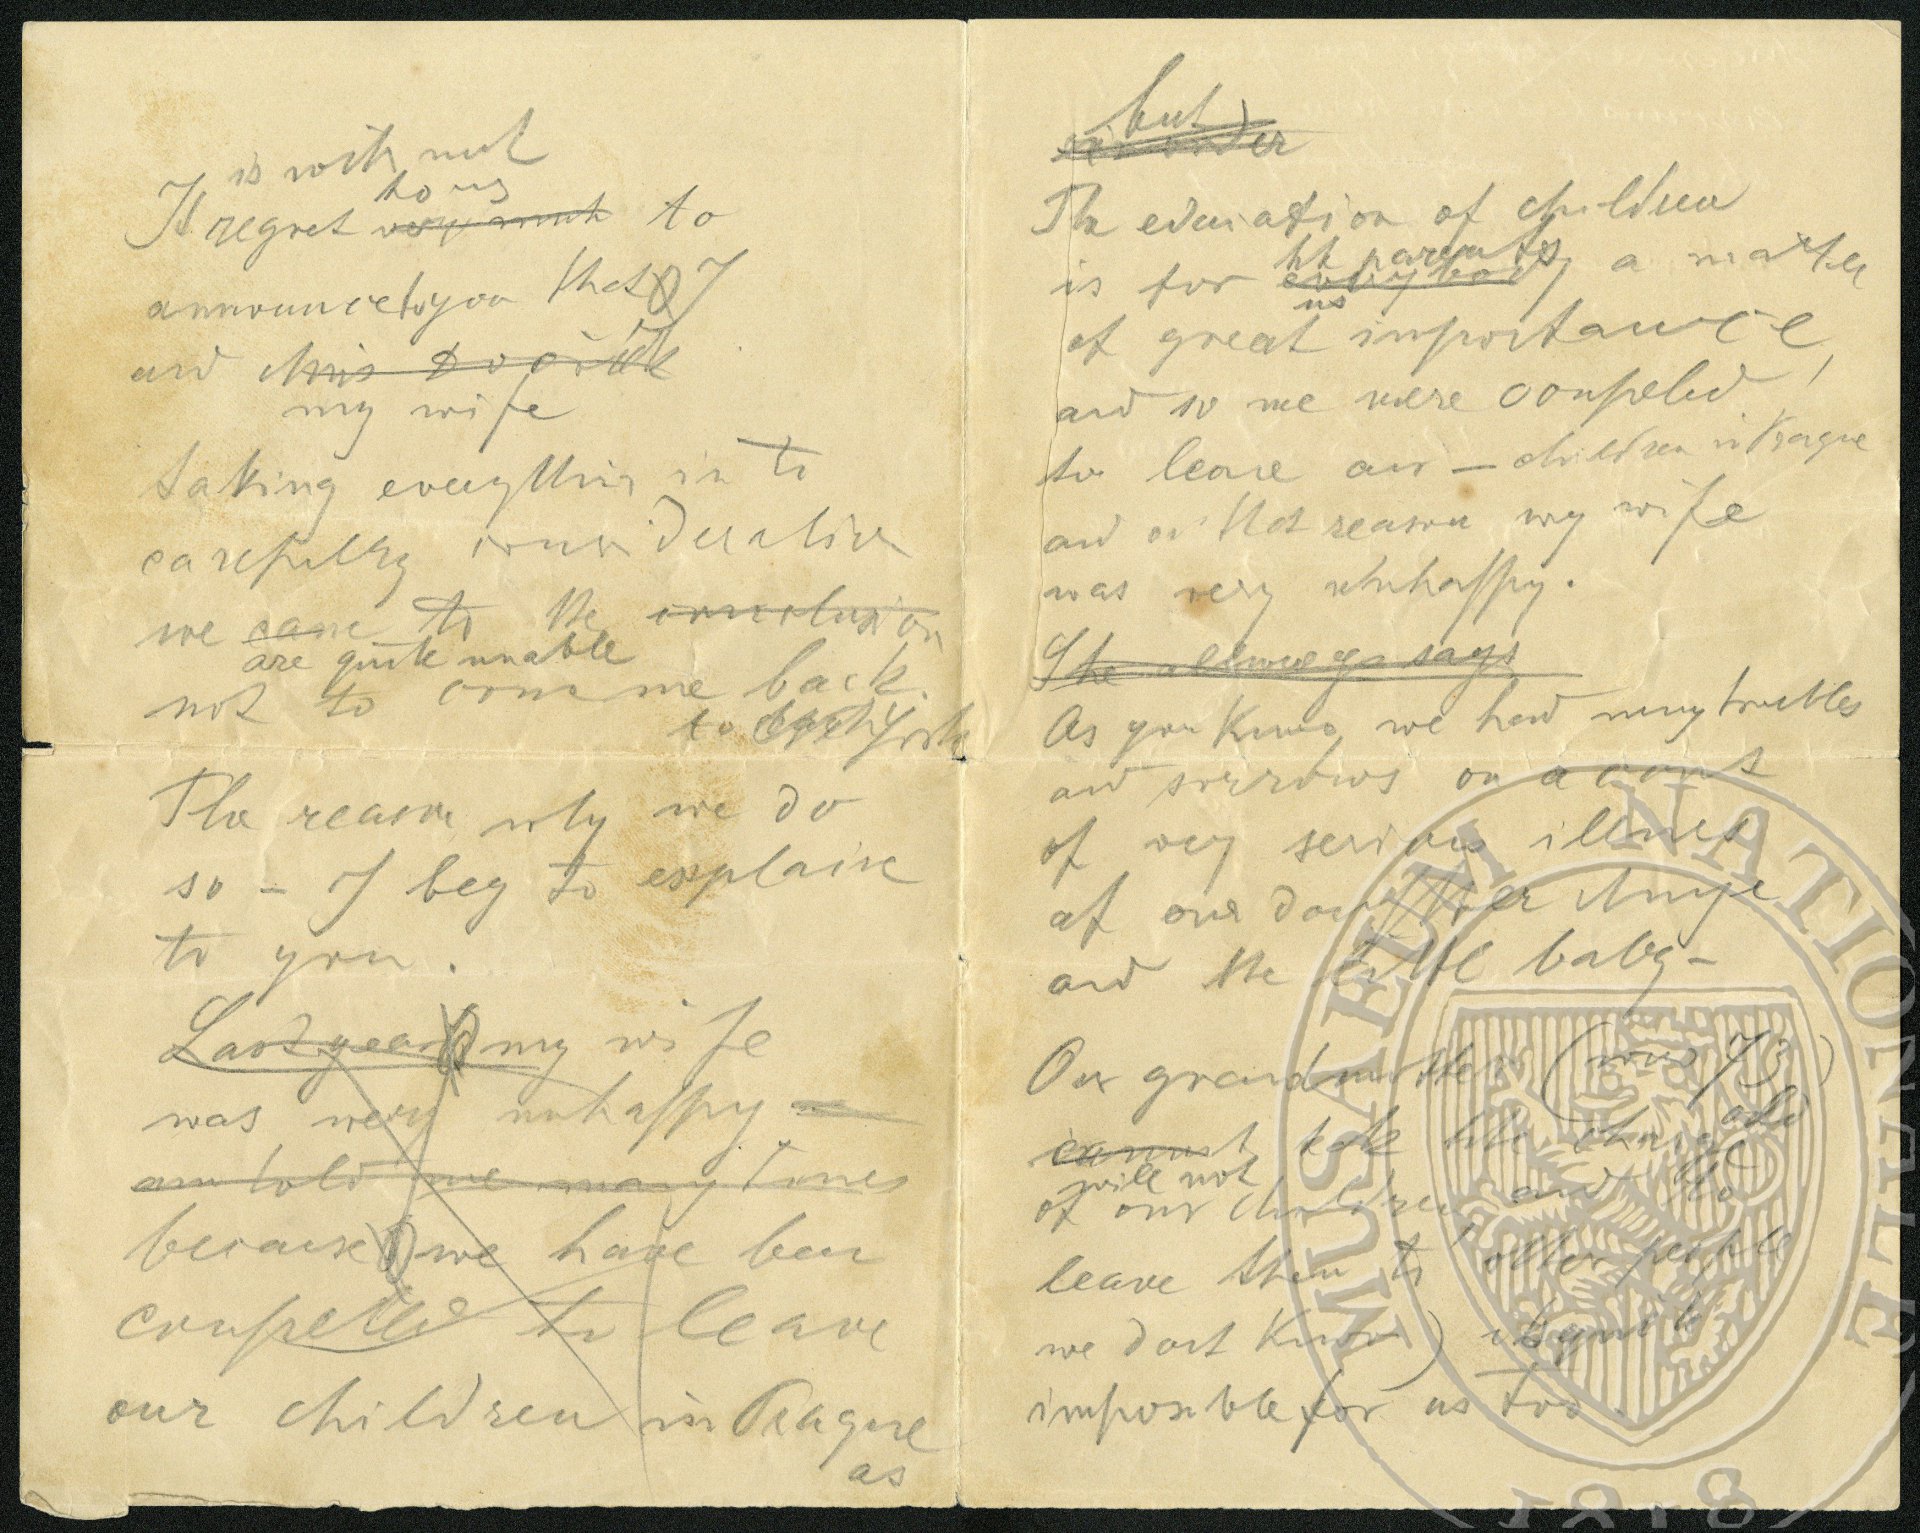 is with
to us
It regret very much to
announce to you that I
and
my wife
taking everything in to
carefully consideration
we came to the conclusion
are quite unable
not to come back
to
The reason why we do
so – I beg to explain
to you.
Last year my wife
was very unhappy –
told me many times
because we have been
compelled to leave
our children in Prague
as
but
The education of children
is for everybody a matter
parents
us
of great importance,
and so we were compeled
to leave our – children in Prague
and on that reason my wife
was very unhappy.
She allways says
As you know, we had many troubles
and sorrows on account
of very serious illnes
of our daughter
and the little baby –
Our grandmother (was 73)
old
cannot take the charge
will not
of our children and to
leave them to other people
we dont know) is quite
impossible for us too.
MUSAEUM NATIONALE
1818